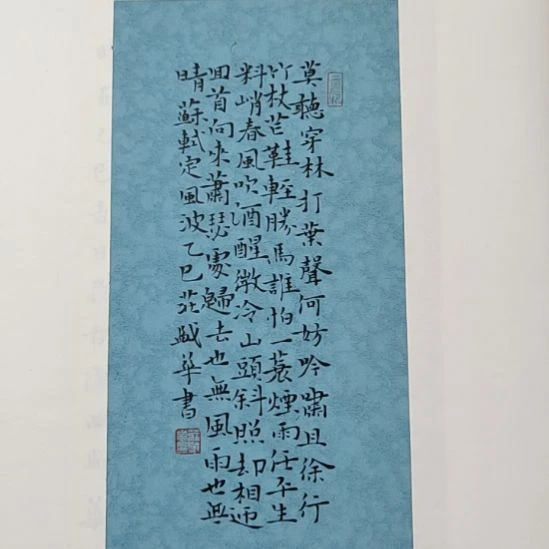 莫聽穿林打葉聲何妨吟嘯且徐行
竹杖芒鞋輕勝馬誰怕一蓑煙雨任平生
料峭春風吹酒醒微冷山頭斜照却相迎
回首向來蕭瑟處歸去也無風雨也無
晴蘇軾定風波乙巳莊華書